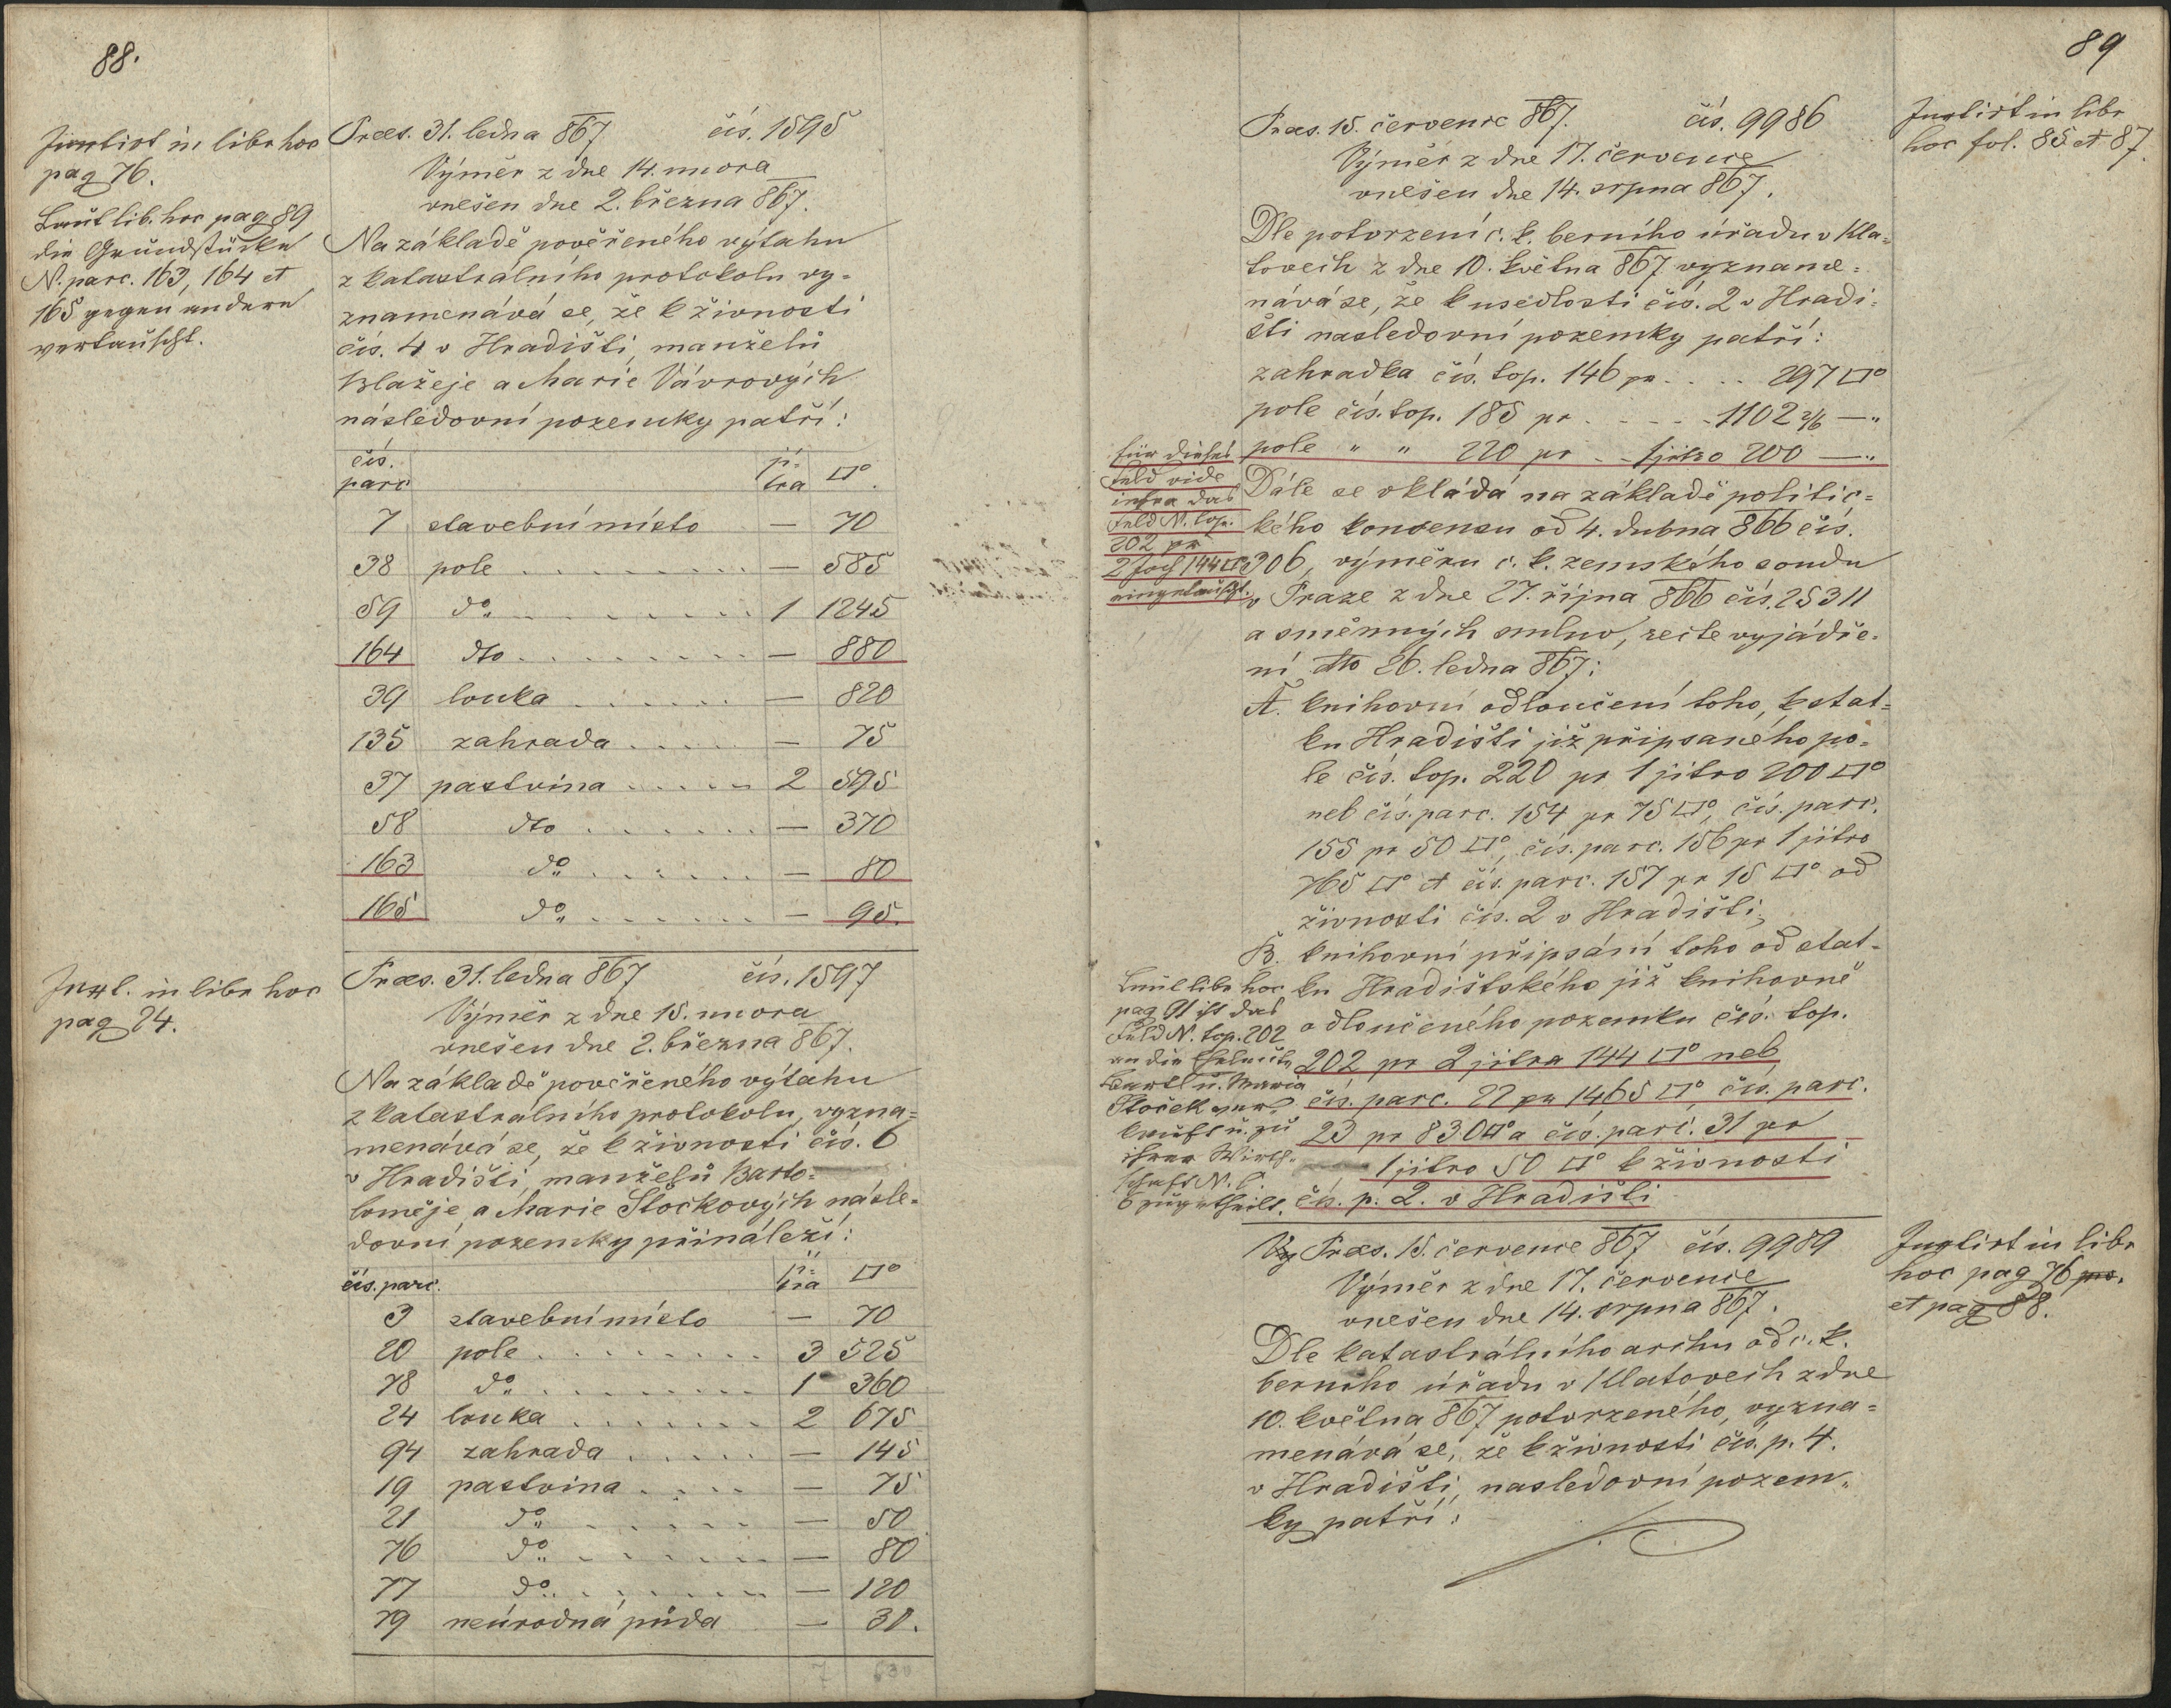 88.
Junctirt in libr hoc
pag 76.
Laut lib. hoc pag 89
die Grundstücke
N. parc. 163, 164 et
165 gegen andere
vertauscht.
Præs. 31. ledna 867 čís. 1595
Výměr z dne 14. unora
vnešen dne 2. března 867.
Na základě pověřeného výtahu
z katastrálního protokolu vy=
znamenává se, že k živnosti
čís. 4 v Hradišti, manželů
Blažeje a Marie Vávrových
následovní pozemky patří:
čís. parc jí-tra □°.
7 stavební místo — 70
38 pole . . . . . . . . — 585
59 do . . . . . . . . 1 1245
164 dto . . . . . . . . — 880
39 louka . . . . . . — 820
135 zahrada . . . . . — 75
37 pastvina . . . . . 2 595
58 dto . . . . . . — 370
163 do . . . . . . — 80
165 do . . . . . . — 95.
Junct. in libr hoc
pag 24.
Præs. 31. ledna 867 čís. 1597
Výměr z dne 15. unora
vnešen dne 2. března 867.
Na základě pověřeného výtahu
z katastrálního protokolu, vyzna=
menává se, že k živnosti čís. 6
v Hradišti, manželů Barto=
loměje a Marie Stočkových násle=
dovní pozemky přináleží:
čís. parc. ji-tra □°
3 stavební místo — 70
20 pole . . . . . . . . 3 525
78 do . . . . . . . . 1 360
24 louka . . . . . . . 2 675
94 zahrada . . . . . — 145
19 pastvina . . . . — 75
21 do . . . . . . — 50
76 do . . . . . . — 80
77 do . . . . . . — 120
79 neúrodná půda — 30.
7 630
89
Præs. 15. července 867. čís. 9986
Výměr z dne 17. července
vnešen dne 14. srpna 867.
Junctirt in libr
hoc fol. 85 et 87.
Dle potvrzení c. k. berního úřadu v Kla=
tovech z dne 10. května 867 vyzname=
nává se, že k usedlosti čís. 2 v Hradi=
šti nasledovní pozemky patří:
zahradka čís. top. 146 pr . . . . 297 □°
pole čís. top. 185 pr . . . . . 1102 3/6 — „
pole „ „ 220 pr . . 1 jitro 200 — „
für dieses
Feld vide
infra das
Feld N. top.
202 pr
2 Joch 144 □°
eingetauscht.
Dále se vkládá na základě politic=
kého konsensu od 4. dubna 866 čís.
306, výměru c. k. zemského soudu
v Praze z dne 27. října 866 čís. 25311
a směnných smluv, recte vyjádře=
ní dto 26. ledna 867:
A. knihovní odloučení toho, k stat=
ku Hradišti již připsaného po=
le čís. top. 220 pr 1 jitro 200 □°
neb čís. parc. 154 pr 75 □°, čís. parc.
155 pr 50 □°, čís. parc. 156 pr 1 jitro
765 □° et čís. parc. 157 pr 15 □° od
živnosti čís. 2 v Hradišti;
B. knihovní připsání toho od stat=
ku Hradištského již knihovně
odloučeného pozemku čís. top.
202 pr 2 jitra 144 □° neb
čís. parc. 22 pr 1465 □° čís. parc.
23 pr 830 □° a čís. parc. 31 pr
1 jitro 50 □° k živnosti
čís. p. 2. v Hradišti
Laut libr hoc
pag 91 ist das
Feld N. top. 202
an die Eheleute
Bartl u. Maria
Stoček ver=
kauft u. zu
ihrer Wirth=
schaft N. C.
6 zugetheilt.
Præs. 15. července 867 čís. 9989
Výměr z dne 17. července
vnešen dne 14. srpna 867.
Junctirt in libr
hoc pag 76 pr.
et pag 88.
Dle katastrálního archu od c. k.
berního úřadu v Klatovech z dne
10. května 867 potvrzeného, vyzna=
menává se, že k živnosti čís. p. 4.
v Hradišti, nasledovní pozem=
ky patří: